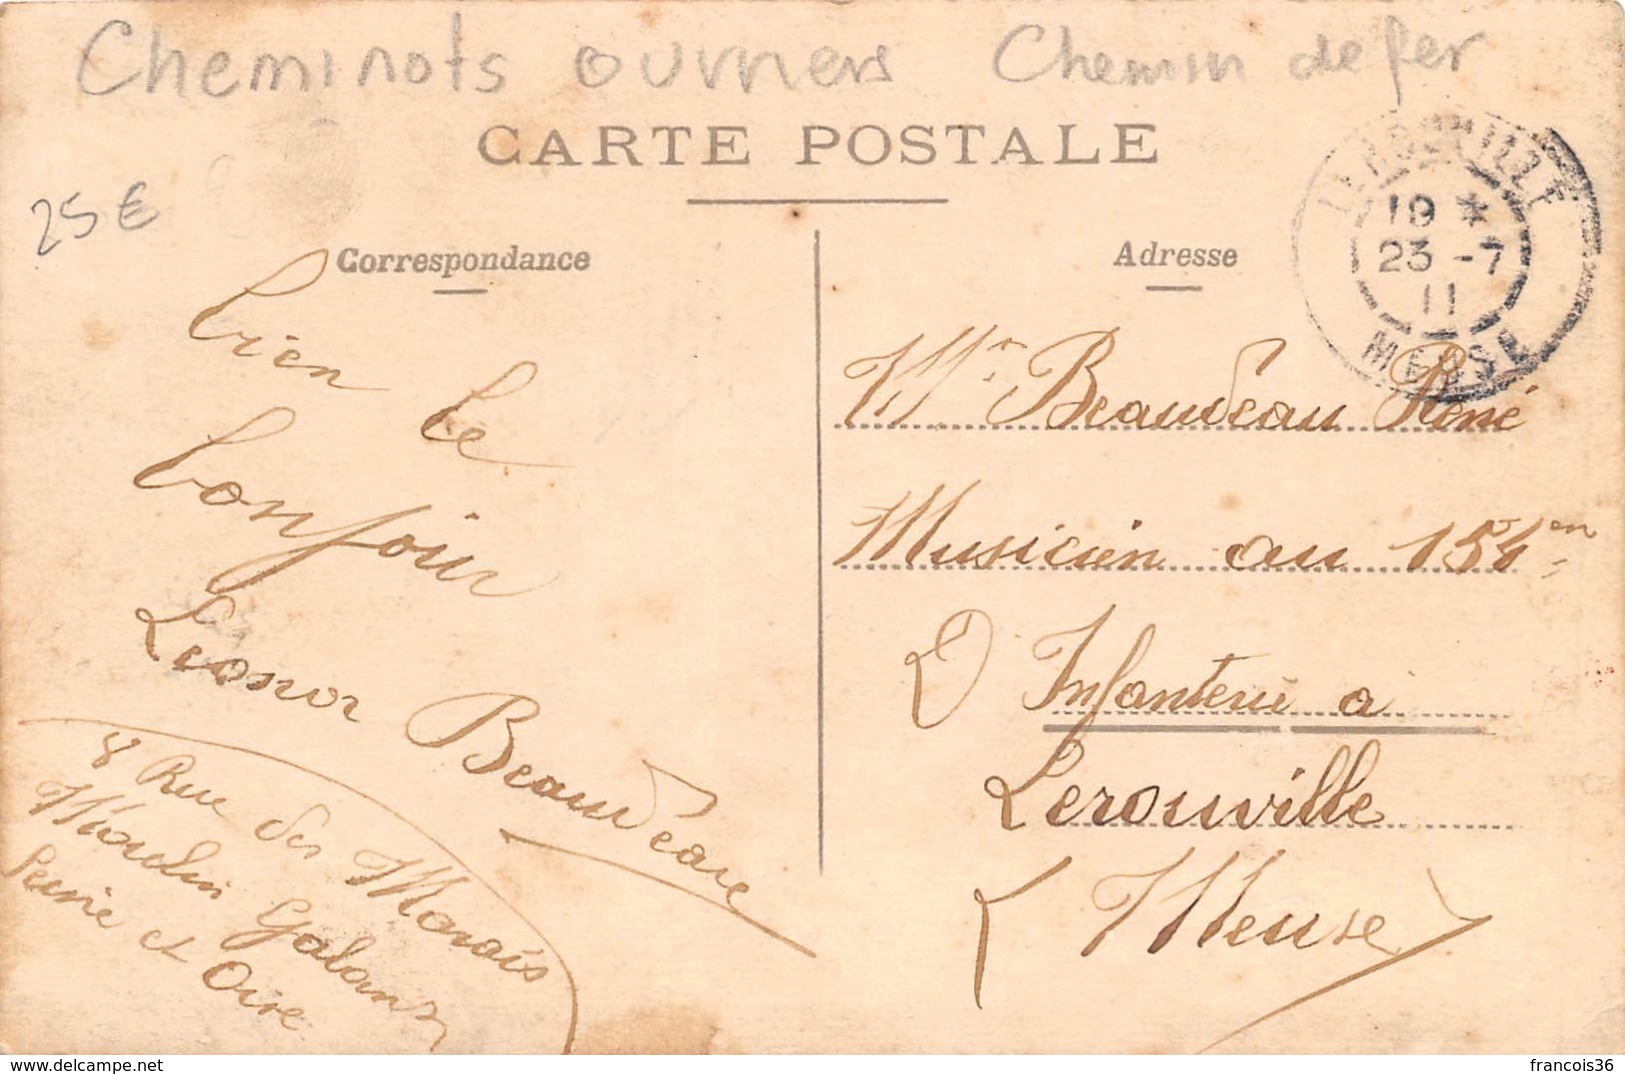 Cheminots ouvriers Chemin de fer
CARTE POSTALE
25 €
Correspondance
bien le
bonjour
Leonor Beaudeau
8 Rue des Marais
Moulin Galant
Seine et Oise
Adresse
LEROUVILLE
19 *
23 - 7
11
MEUSE
Mr Beaudeau René
Musicien au 154 en
D Infanterie a
Lerouville
(Meuse)
delcampe.net
francois36